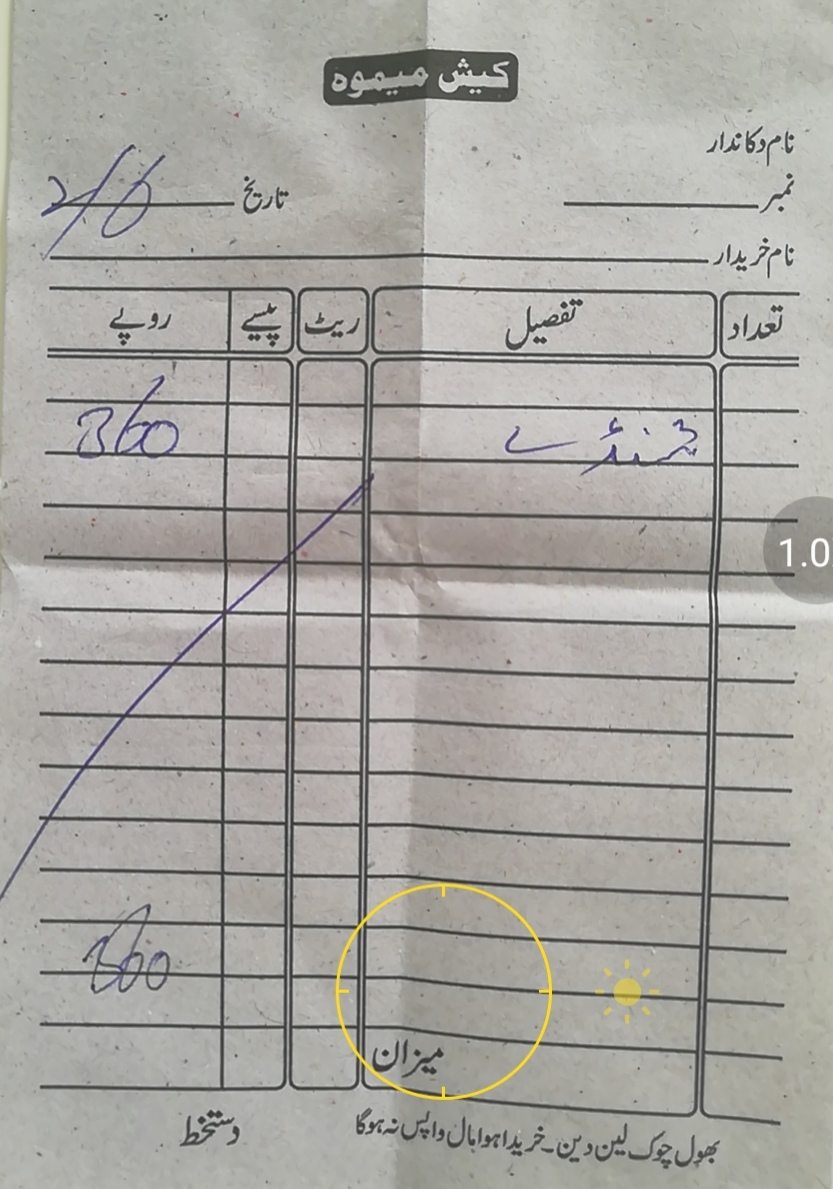 کیش میموہ
نام دکاندار
نمبر تاریخ 2/6
نام خریدار
تعداد تفصیل ریٹ پیسے روپے
ٹنڈے 360
360
میزان
بھول چوک لین دین۔ خریدا ہوا مال واپس نہ ہوگا
دستخط
1.0